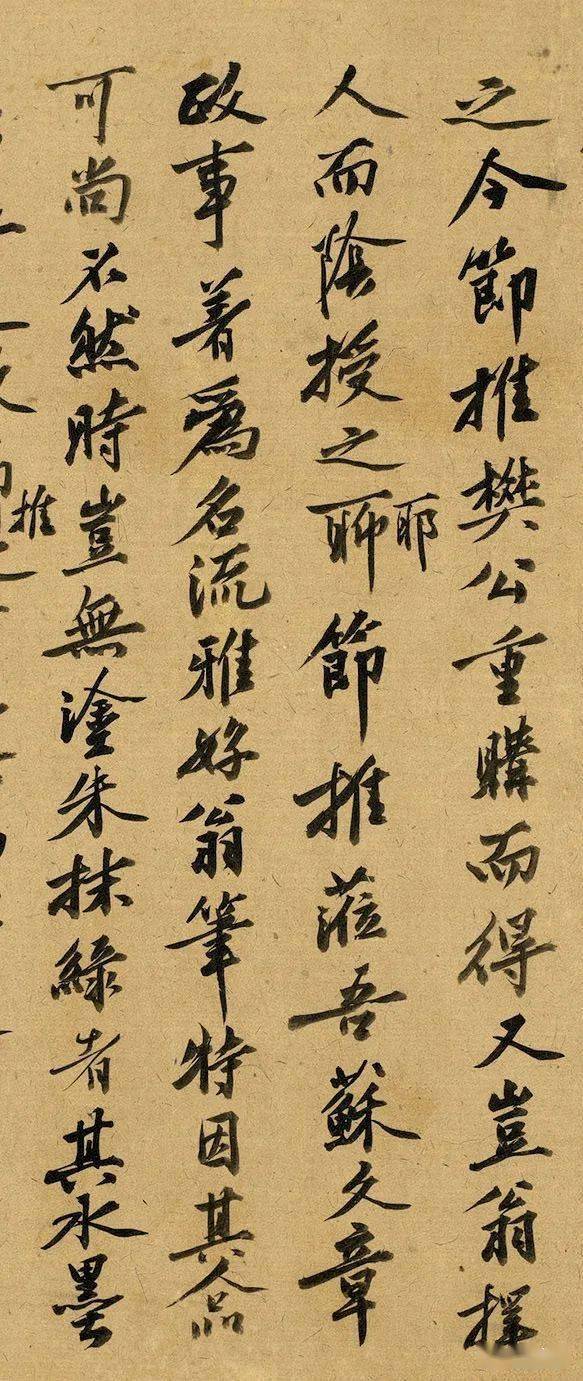 之今節推樊公重購而得又豈翁擇
人而陰授之聊耶節推蒞吾蘇文章
政事着爲名流雅好翁筆特因其人品
可尚不然時豈無塗朱抹綠者其水墨
推